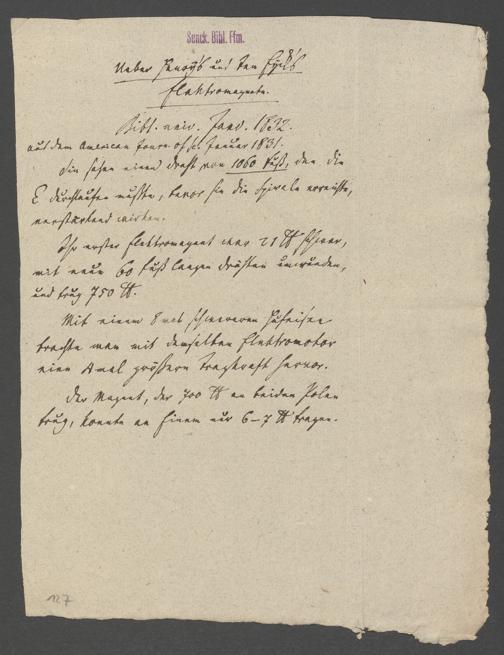 Senck. Bibl. Ffm.
Ueber Henrys und Ten Eyks
Elektromagnete.
Bibl. univ. Janv. 1832.
aus dem American Journ. of sc. Januar 1831.
Sie sahen einen Draht von 1060 Fuß, den die
E durchlaufen mußte, bevor sie die Spirale erreichte,
verstärkend wirken.
Ihr erster Elektromagnet war 21 ℔ schwer,
mit neun 60 Fuß langen Drähten umwunden,
und trug 750 ℔.
Mit einem schwereren Hufeisen
brachte man mit demselben Elektromotor
eine größere Tragkraft hervor.
Der Magnet, der 700 ℔ an beiden Polen
trug, konnte an Einem nur 6–7 ℔ tragen.
127